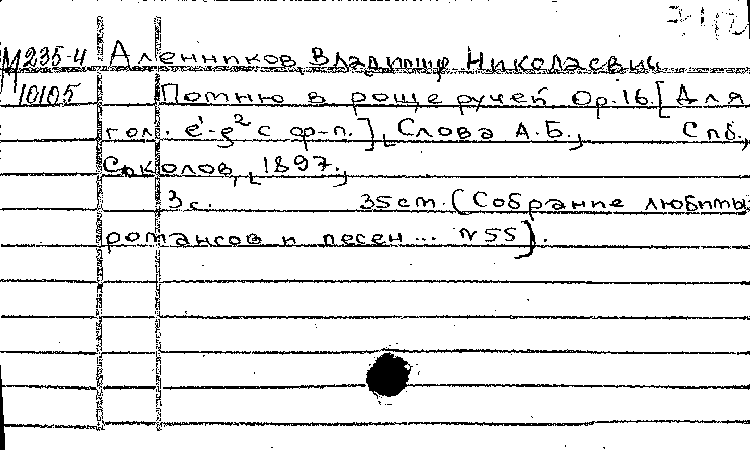 М235-4 Аленников, Владимир Николаевич
10105 Помню в роще ручей Op.16. [Для
гол. e¹-g² с ф-п.], Слова А.Б., Спб.,
Соколов, [1897.]
3 с. 35 cm. (Собрание любимы
романсов и песен... N 55).